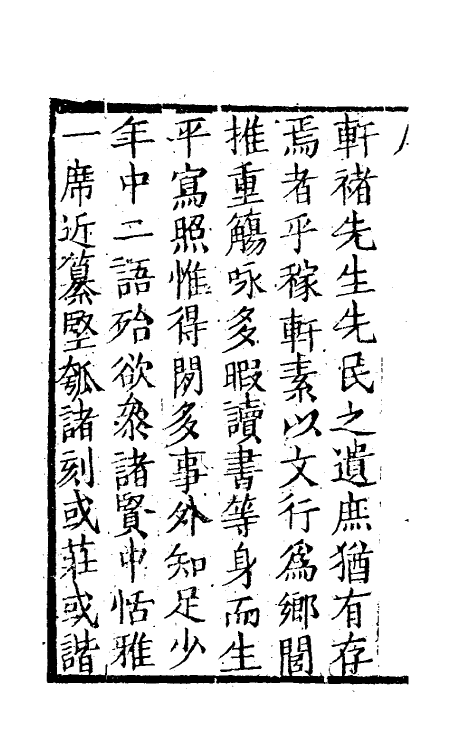 軒禇先生先民之遺庶猶有存
焉者乎稼軒素以文行爲鄉閭
推重觴咏多暇讀書等身而生
平寫照惟得閒多事外知足少
年中二語殆欲參諸賢中恬雅
一席近纂堅瓠諸刻或莊或諧